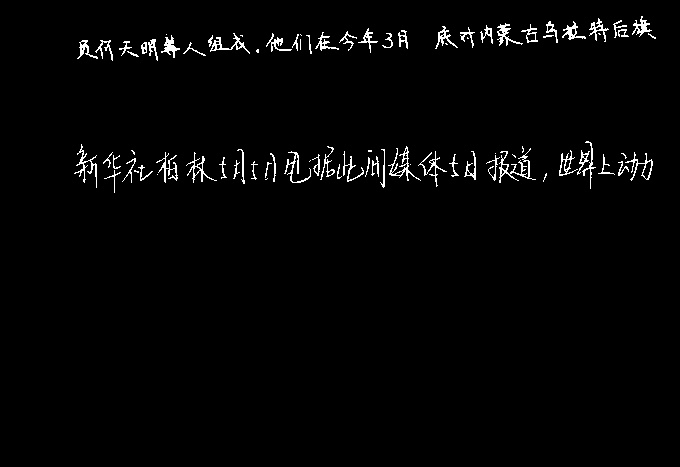 员何天明等人组成.他们在今年3月 底对内蒙古乌拉特后旗
新华社柏林5月5日电据此间媒体5日报道,世界上动力